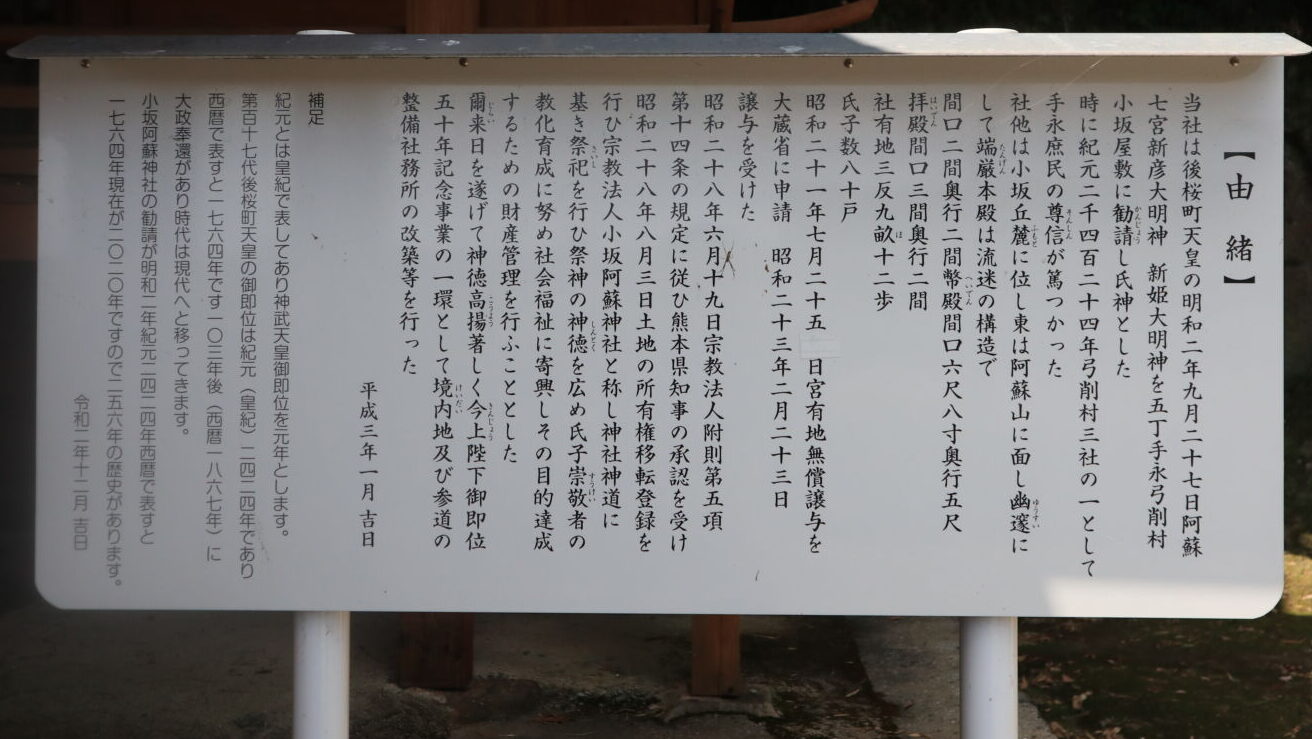 【由 緒】
当社は後桜町天皇の明和二年九月二十七日阿蘇
七宮新彦大明神 新姫大明神を五丁手永弓削村
小坂屋敷に勧請し氏神とした
時に紀元二千四百二十四年弓削村三社の一として
手永庶民の尊信が篤つかった
社他は小坂丘麓に位し東は阿蘇山に面し幽邃に
して端厳本殿は流迷の構造で
間口二間奥行二間幣殿間口六尺八寸奥行五尺
拝殿間口三間奥行二間
社有地三反九畝十二歩
氏子数八十戸
昭和二十一年七月二十五 日宮有地無償譲与を
大蔵省に申請 昭和二十三年二月二十三日
譲与を受けた
昭和二十八年六月十九日宗教法人附則第五項
第十四条の規定に従ひ熊本県知事の承認を受け
昭和二十八年八月三日土地の所有権移転登録を
行ひ宗教法人小坂阿蘇神社と称し神社神道に
基き祭祀を行ひ祭神の神徳を広め氏子崇敬者の
教化育成に努め社会福祉に寄興しその目的達成
するための財産管理を行ふこととした
爾来日を遂げて神徳高揚著しく今上陛下御即位
五十年記念事業の一環として境内地及び参道の
整備社務所の改築等を行った
平成三年一月 吉日
補足
紀元とは皇紀で表してあり神武天皇御即位を元年とします。
第百十七代後桜町天皇の御即位は紀元（皇紀）二四二四年であり
西暦で表すと一七六四年です一〇三年後（西暦一八六七年）に
大政奉還があり時代は現代へと移ってきます。
小坂阿蘇神社の勧請が明和二年紀元二四二四年西暦で表すと
一七六四年現在が二〇二〇年ですので二五六年の歴史があります。
令和二年十二月 吉日